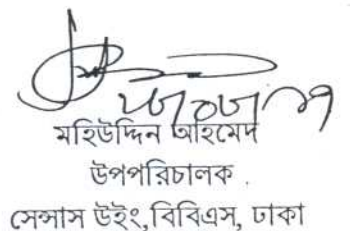 মহিউদ্দিন আহমেদ
উপপরিচালক
সেন্সাস উইং,বিবিএস, ঢাকা